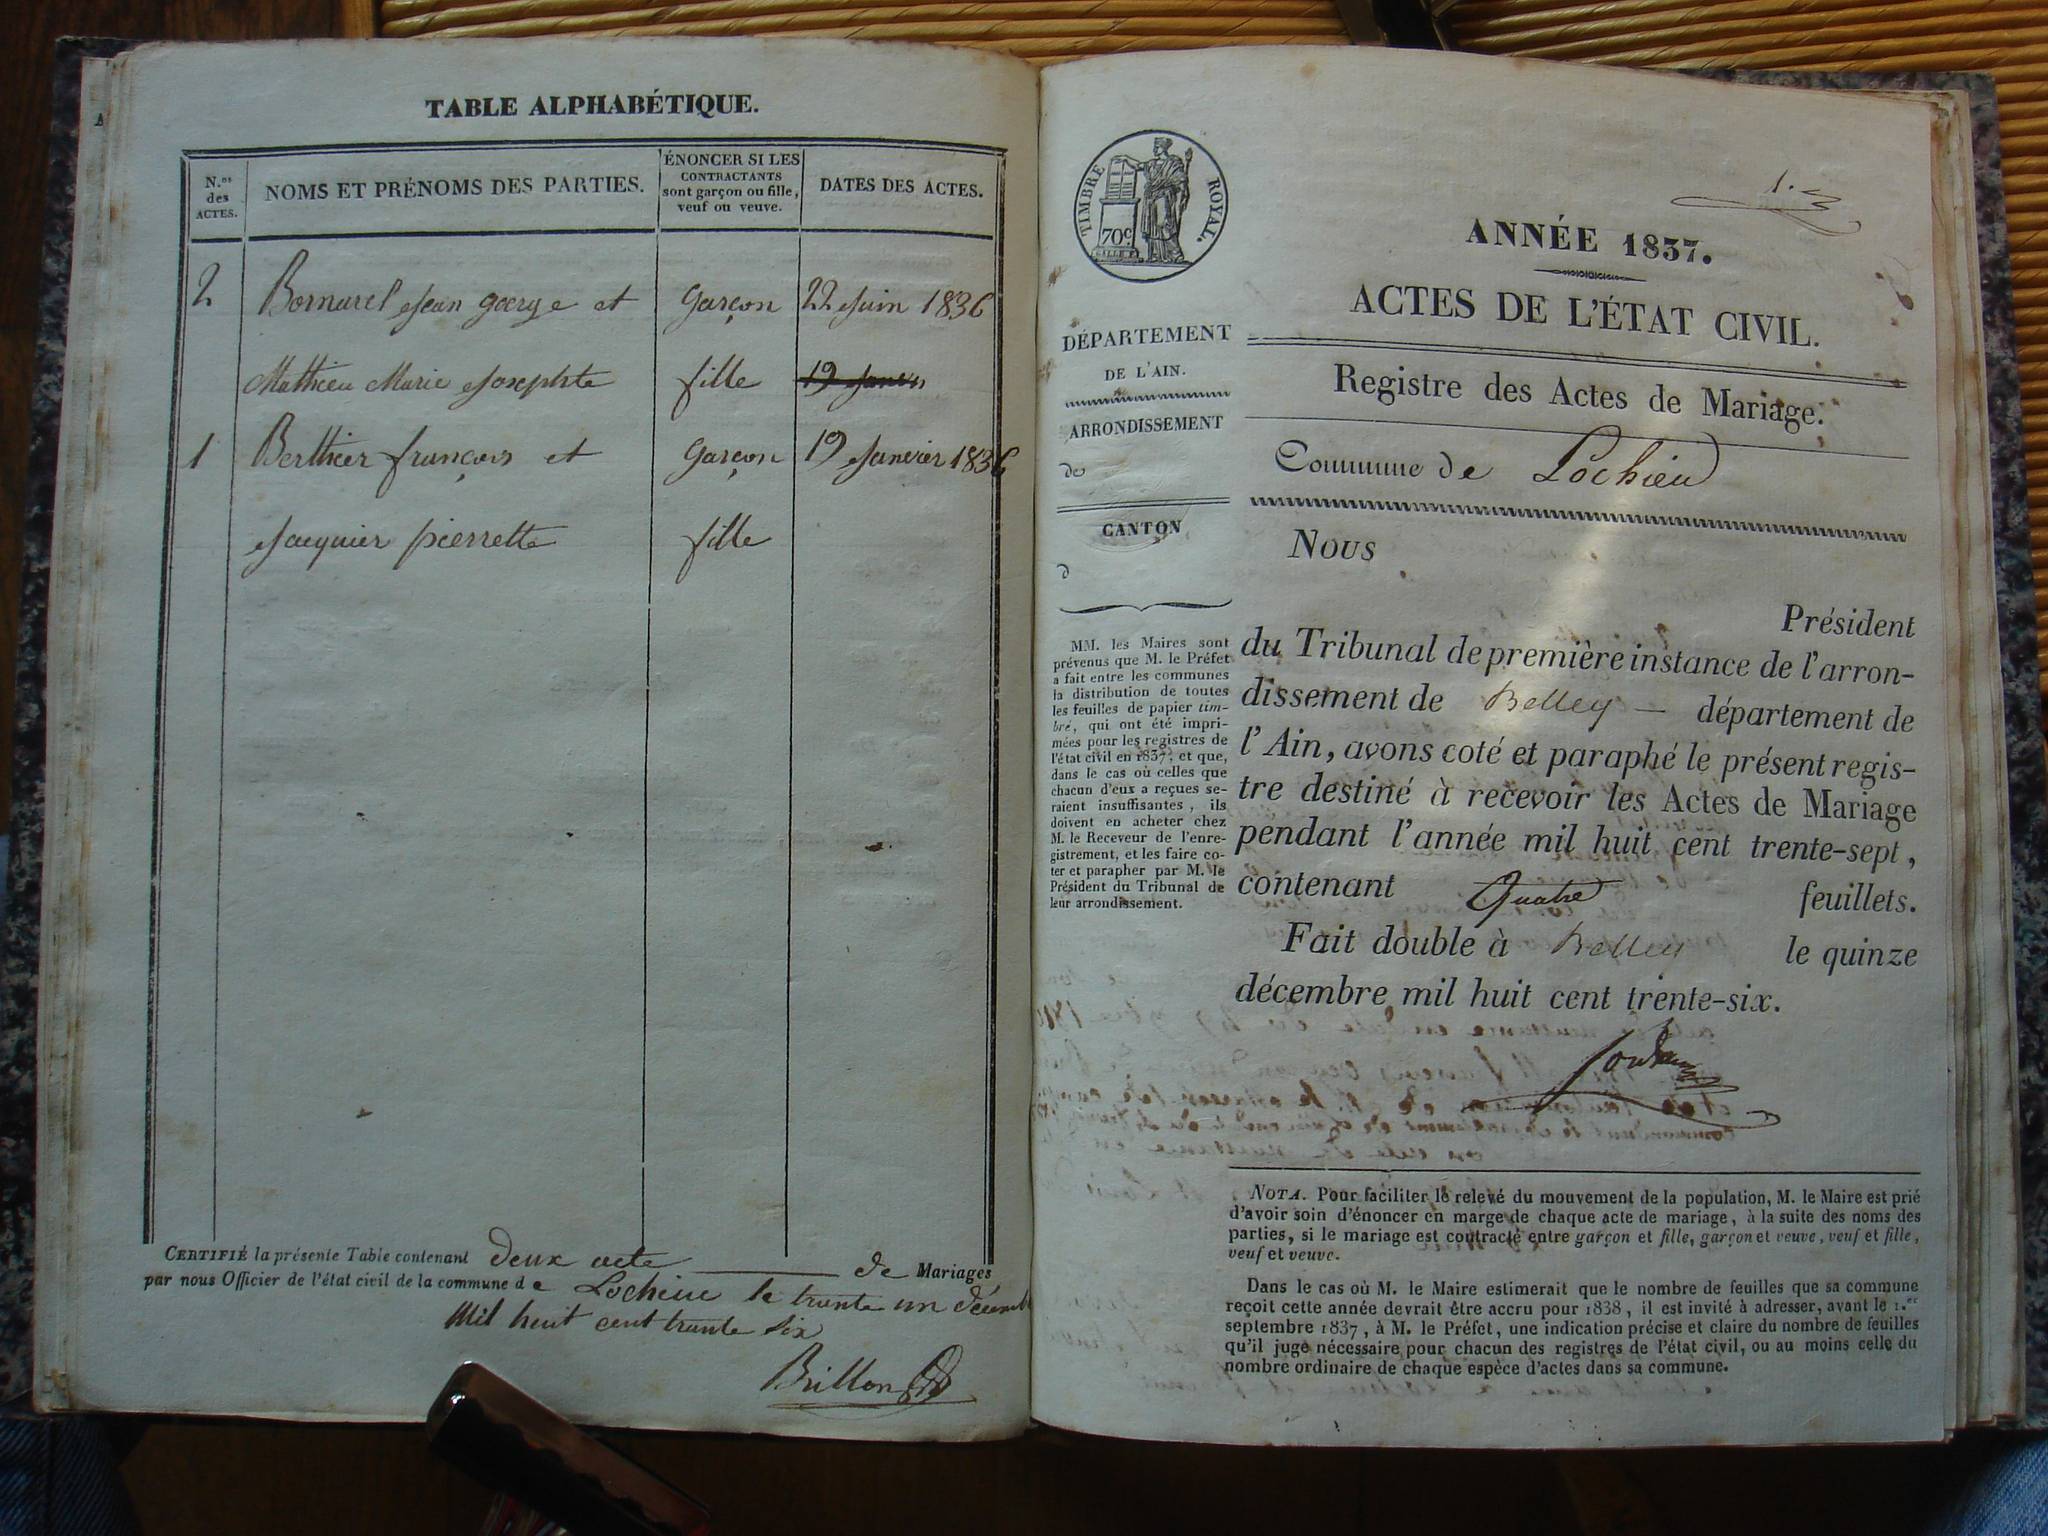 TABLE ALPHABÉTIQUE.
N.os des ACTES.
NOMS ET PRÉNOMS DES PARTIES.
ÉNONCER SI LES
CONTRACTANTS
sont garçon ou fille,
veuf ou veuve.
DATES DES ACTES.
2 Bornarel Jean george et garçon 22 Juin 1836
Mathieu Marie Josephte fille 19 Janvier
1 Berthier françois et garçon 19 Janvier 1836
Jacquier pierrette fille
CERTIFIÉ la présente Table contenant deux acte de Mariages
par nous Officier de l'état civil de la commune de Lochieu le trente un décembre
Mil huit cent trente six
Brillon
TIMBRE ROYAL.
70c
1.
ANNÉE 1837.
ACTES DE L'ÉTAT CIVIL.
Registre des Actes de Mariage.
Commune de Lochieu
DÉPARTEMENT
DE L'AIN.
ARRONDISSEMENT
de
CANTON
d
MM. les Maires sont
prévenus que M. le Préfet
a fait entre les communes
la distribution de toutes
les feuilles de papier tim-
bré, qui ont été impri-
mées pour les registres de
l'état civil en 1837; et que,
dans le cas où celles que
chacun d'eux a reçues se-
raient insuffisantes, ils
doivent en acheter chez
M. le Receveur de l'enre-
gistrement, et les faire co-
ter et parapher par M. le
Président du Tribunal de
leur arrondissement.
NOUS
Président
du Tribunal de première instance de l'arron-
dissement de Belley — département de
l'Ain, avons coté et paraphé le présent regis-
tre destiné à recevoir les Actes de Mariage
pendant l'année mil huit cent trente-sept,
contenant Quatre feuillets.
Fait double à Belley le quinze
décembre mil huit cent trente-six.
NOTA. Pour faciliter le relevé du mouvement de la population, M. le Maire est prié
d'avoir soin d'énoncer en marge de chaque acte de mariage, à la suite des noms des
parties, si le mariage est contracté entre garçon et fille, garçon et veuve, veuf et fille,
veuf et veuve.
Dans le cas où M. le Maire estimerait que le nombre de feuilles que sa commune
reçoit cette année devrait être accru pour 1838, il est invité à adresser, avant le 1.er
septembre 1837, à M. le Préfet, une indication précise et claire du nombre de feuilles
qu'il juge nécessaire pour chacun des registres de l'état civil, ou au moins celle du
nombre ordinaire de chaque espèce d'actes dans sa commune.